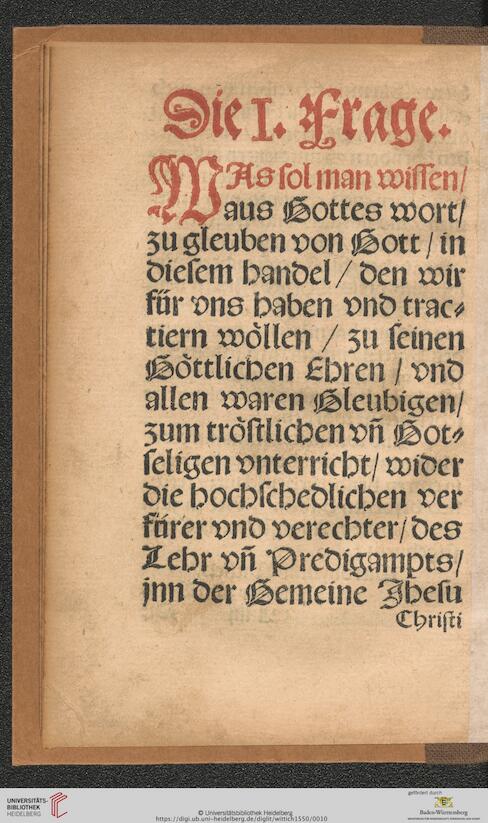 Die I. Frage.
WAs sol man wissen/
aus Gottes wort/
zu gleuben von Gott / in
diesem handel / den wir
für vns haben vnd trac⸗
tiern wöllen / zu seinen
Göttlichen Ehren / vnd
allen waren Gleubigen/
zum tröstlichen vn̄ Got⸗
seligen vnterricht/ wider
die hochschedlichen ver
fürer vnd verechter/ des
Lehr vn̄ Predigampts/
jnn der Gemeine Jhesu
Christi
UNIVERSITÄTS-
BIBLIOTHEK
HEIDELBERG
© Universitätsbibliothek Heidelberg
https://digi.ub.uni-heidelberg.de/diglit/wittich1550/0010
gefördert durch
Baden-Württemberg